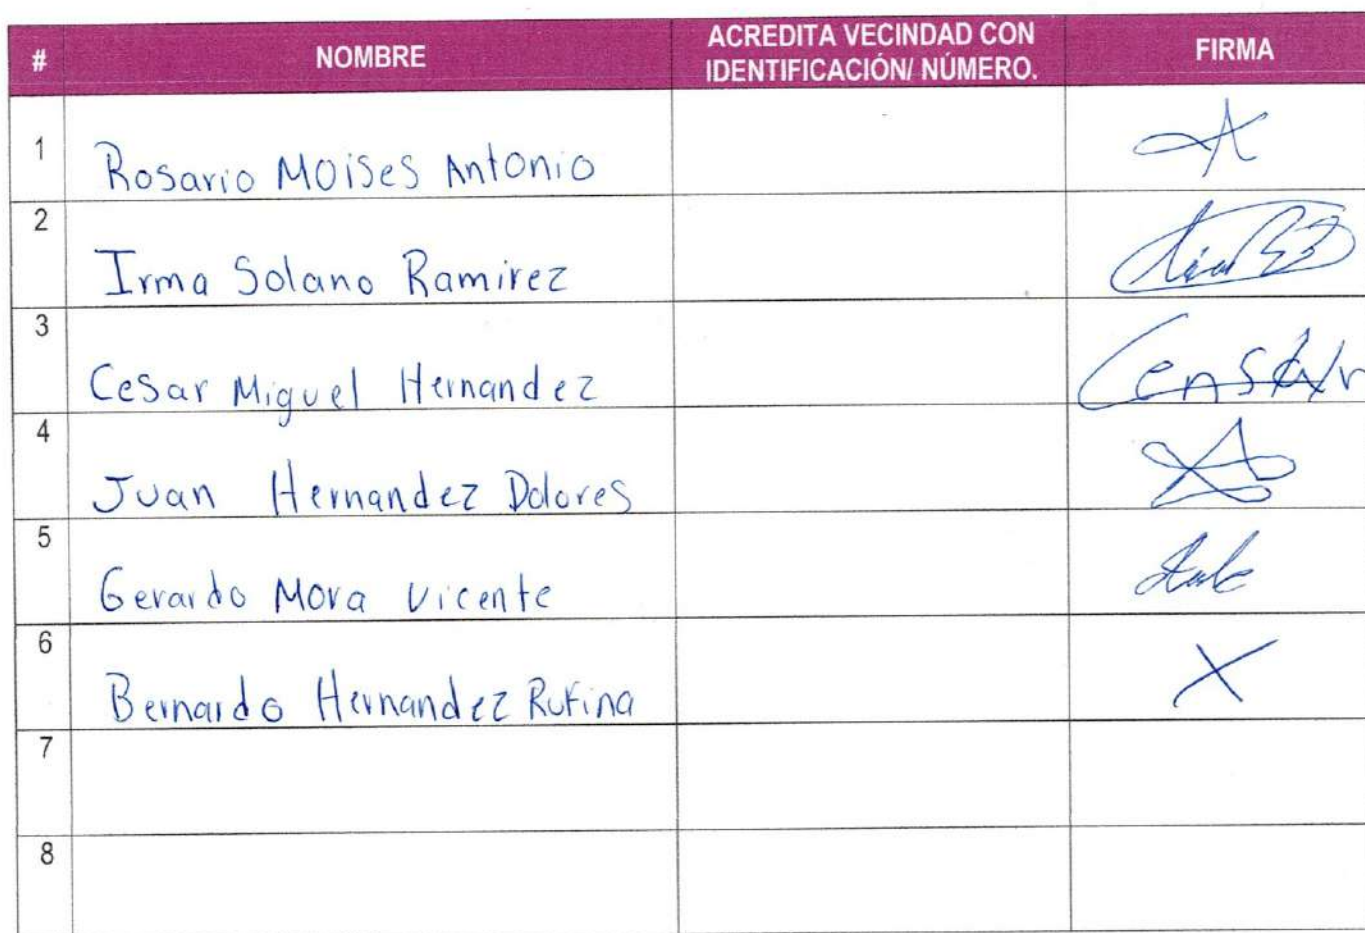 # NOMBRE ACREDITA VECINDAD CON IDENTIFICACIÓN/ NÚMERO. FIRMA
1 Rosario Moises Antonio
2 Irma Solano Ramirez
3 Cesar Miguel Hernandez
4 Juan Hernandez Dolores
5 Gerardo Mora Vicente
6 Bernardo Hernandez Rufina X
7
8